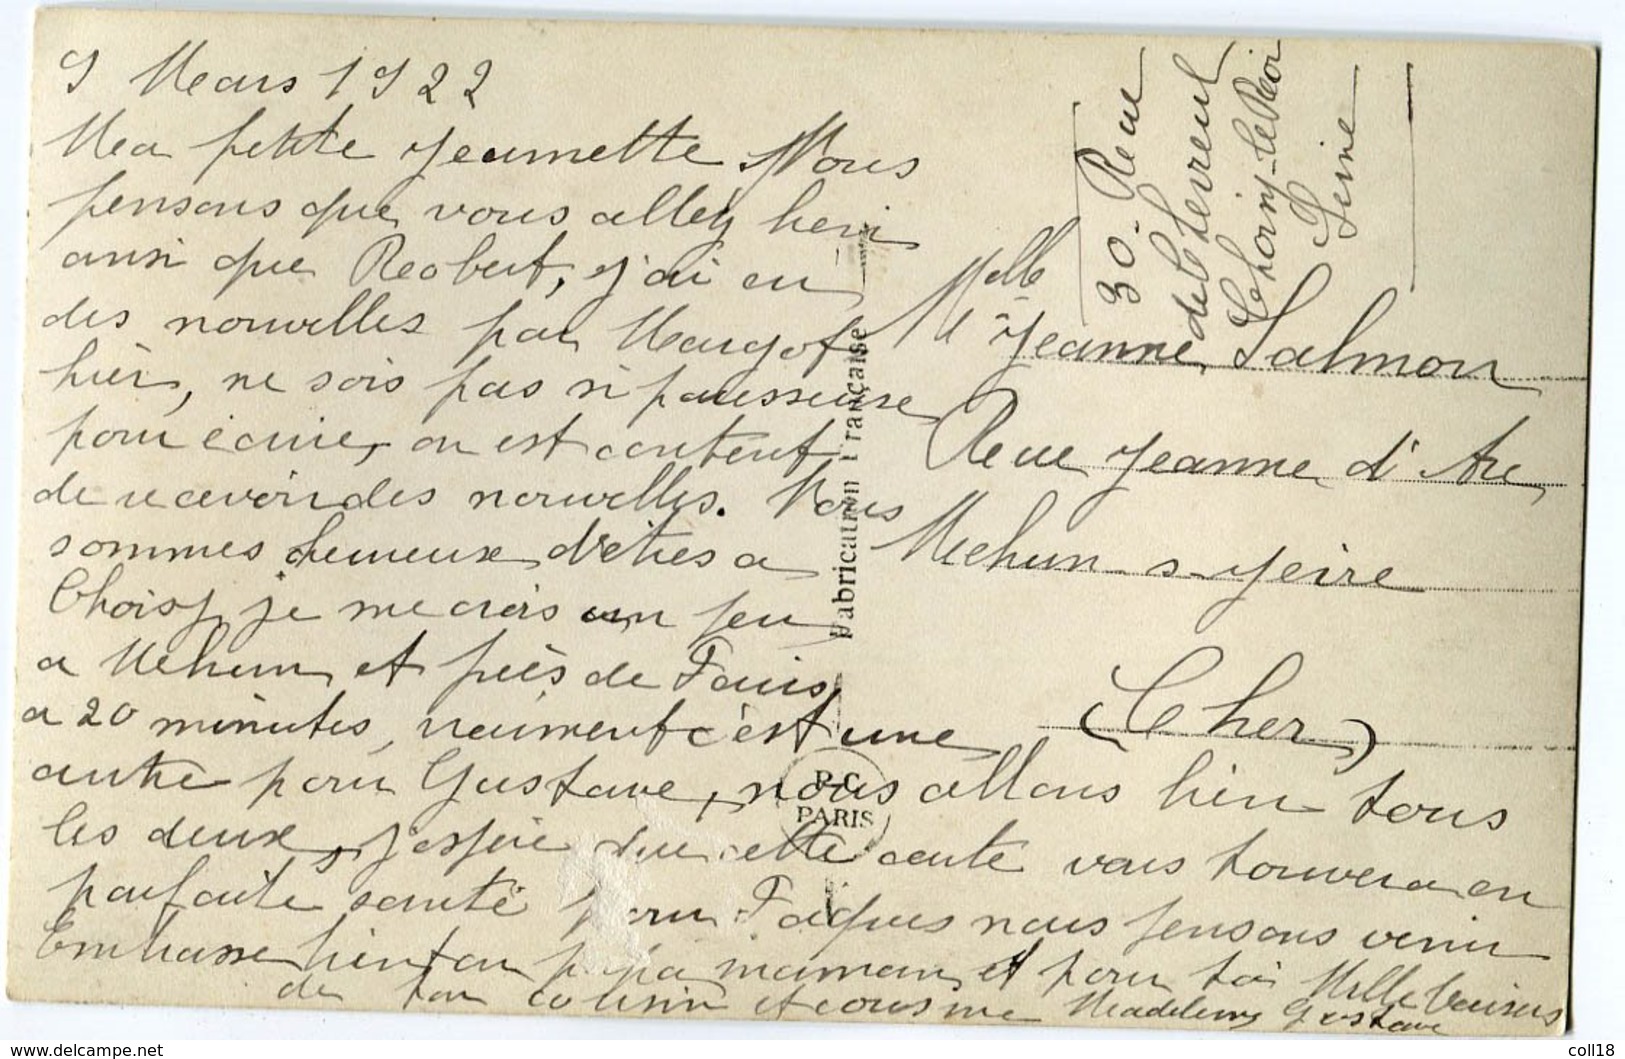 9 Mars 1922
Ma petite Jeannette Nous
pensons que vous allez bien
ainsi que Robert, j'ai eu
des nouvelles par Margot
hier, ne sois pas si paresseuse
pour écrire, on est content
de recevoir des nouvelles. Nous
sommes heureux d'êtres a
Choisy, je me crois un peu
a Mehun et près de Paris
a 20 minutes, vraiment c'est une
autre pour Gustave, nous allons bien tous
les deux, j'espère que cette carte vous trouvera en
parfaite santé pour Pâques nous pensons venir
Embrasse bien ton papa maman et pour toi Mille baisers
de ton cousin et cousine Madeleine Gustave
30. Rue
de Chevreul
Choisy-le-Roi
Seine
Melle
Jeanne Salmon
Rue Jeanne d'Arc
Mehun s-Yèvre
(Cher)
Fabrication Française
P.C
PARIS
www.delcampe.net
coll18